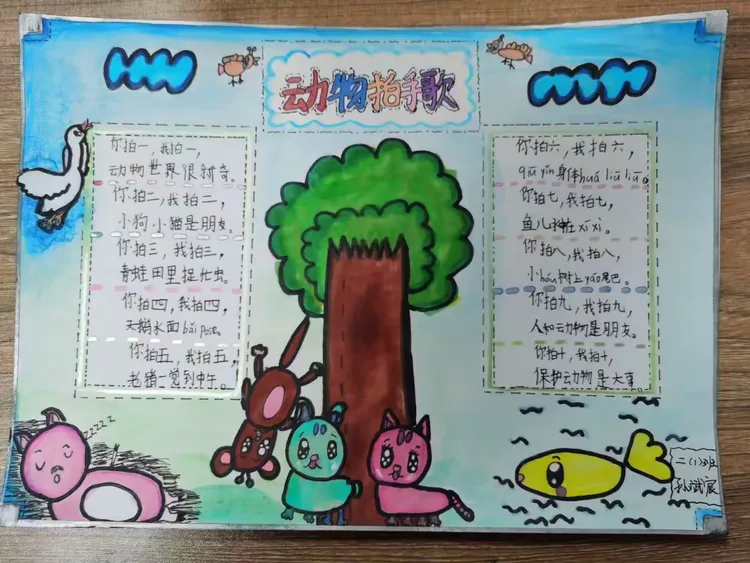 动物拍手歌
你拍一,我拍一,
动物世界很新奇。
你拍二,我拍二,
小狗小猫是朋友。
你拍三,我拍三,
青蛙田里捉忙虫。
你拍四,我拍四,
天鹅水面bǎi pose。
你拍五,我拍五,
老猪一觉到中午。
你拍六,我拍六,
qiū yǐn身体huá liū liū。
你拍七,我拍七,
鱼儿 在xī xì。
你拍八,我拍八,
小hóu树上yáo尾巴。
你拍九,我拍九,
人和动物是朋友。
你拍十,我拍十,
保护动物是大事。
zzzzz
二(1)班
孙斌宸